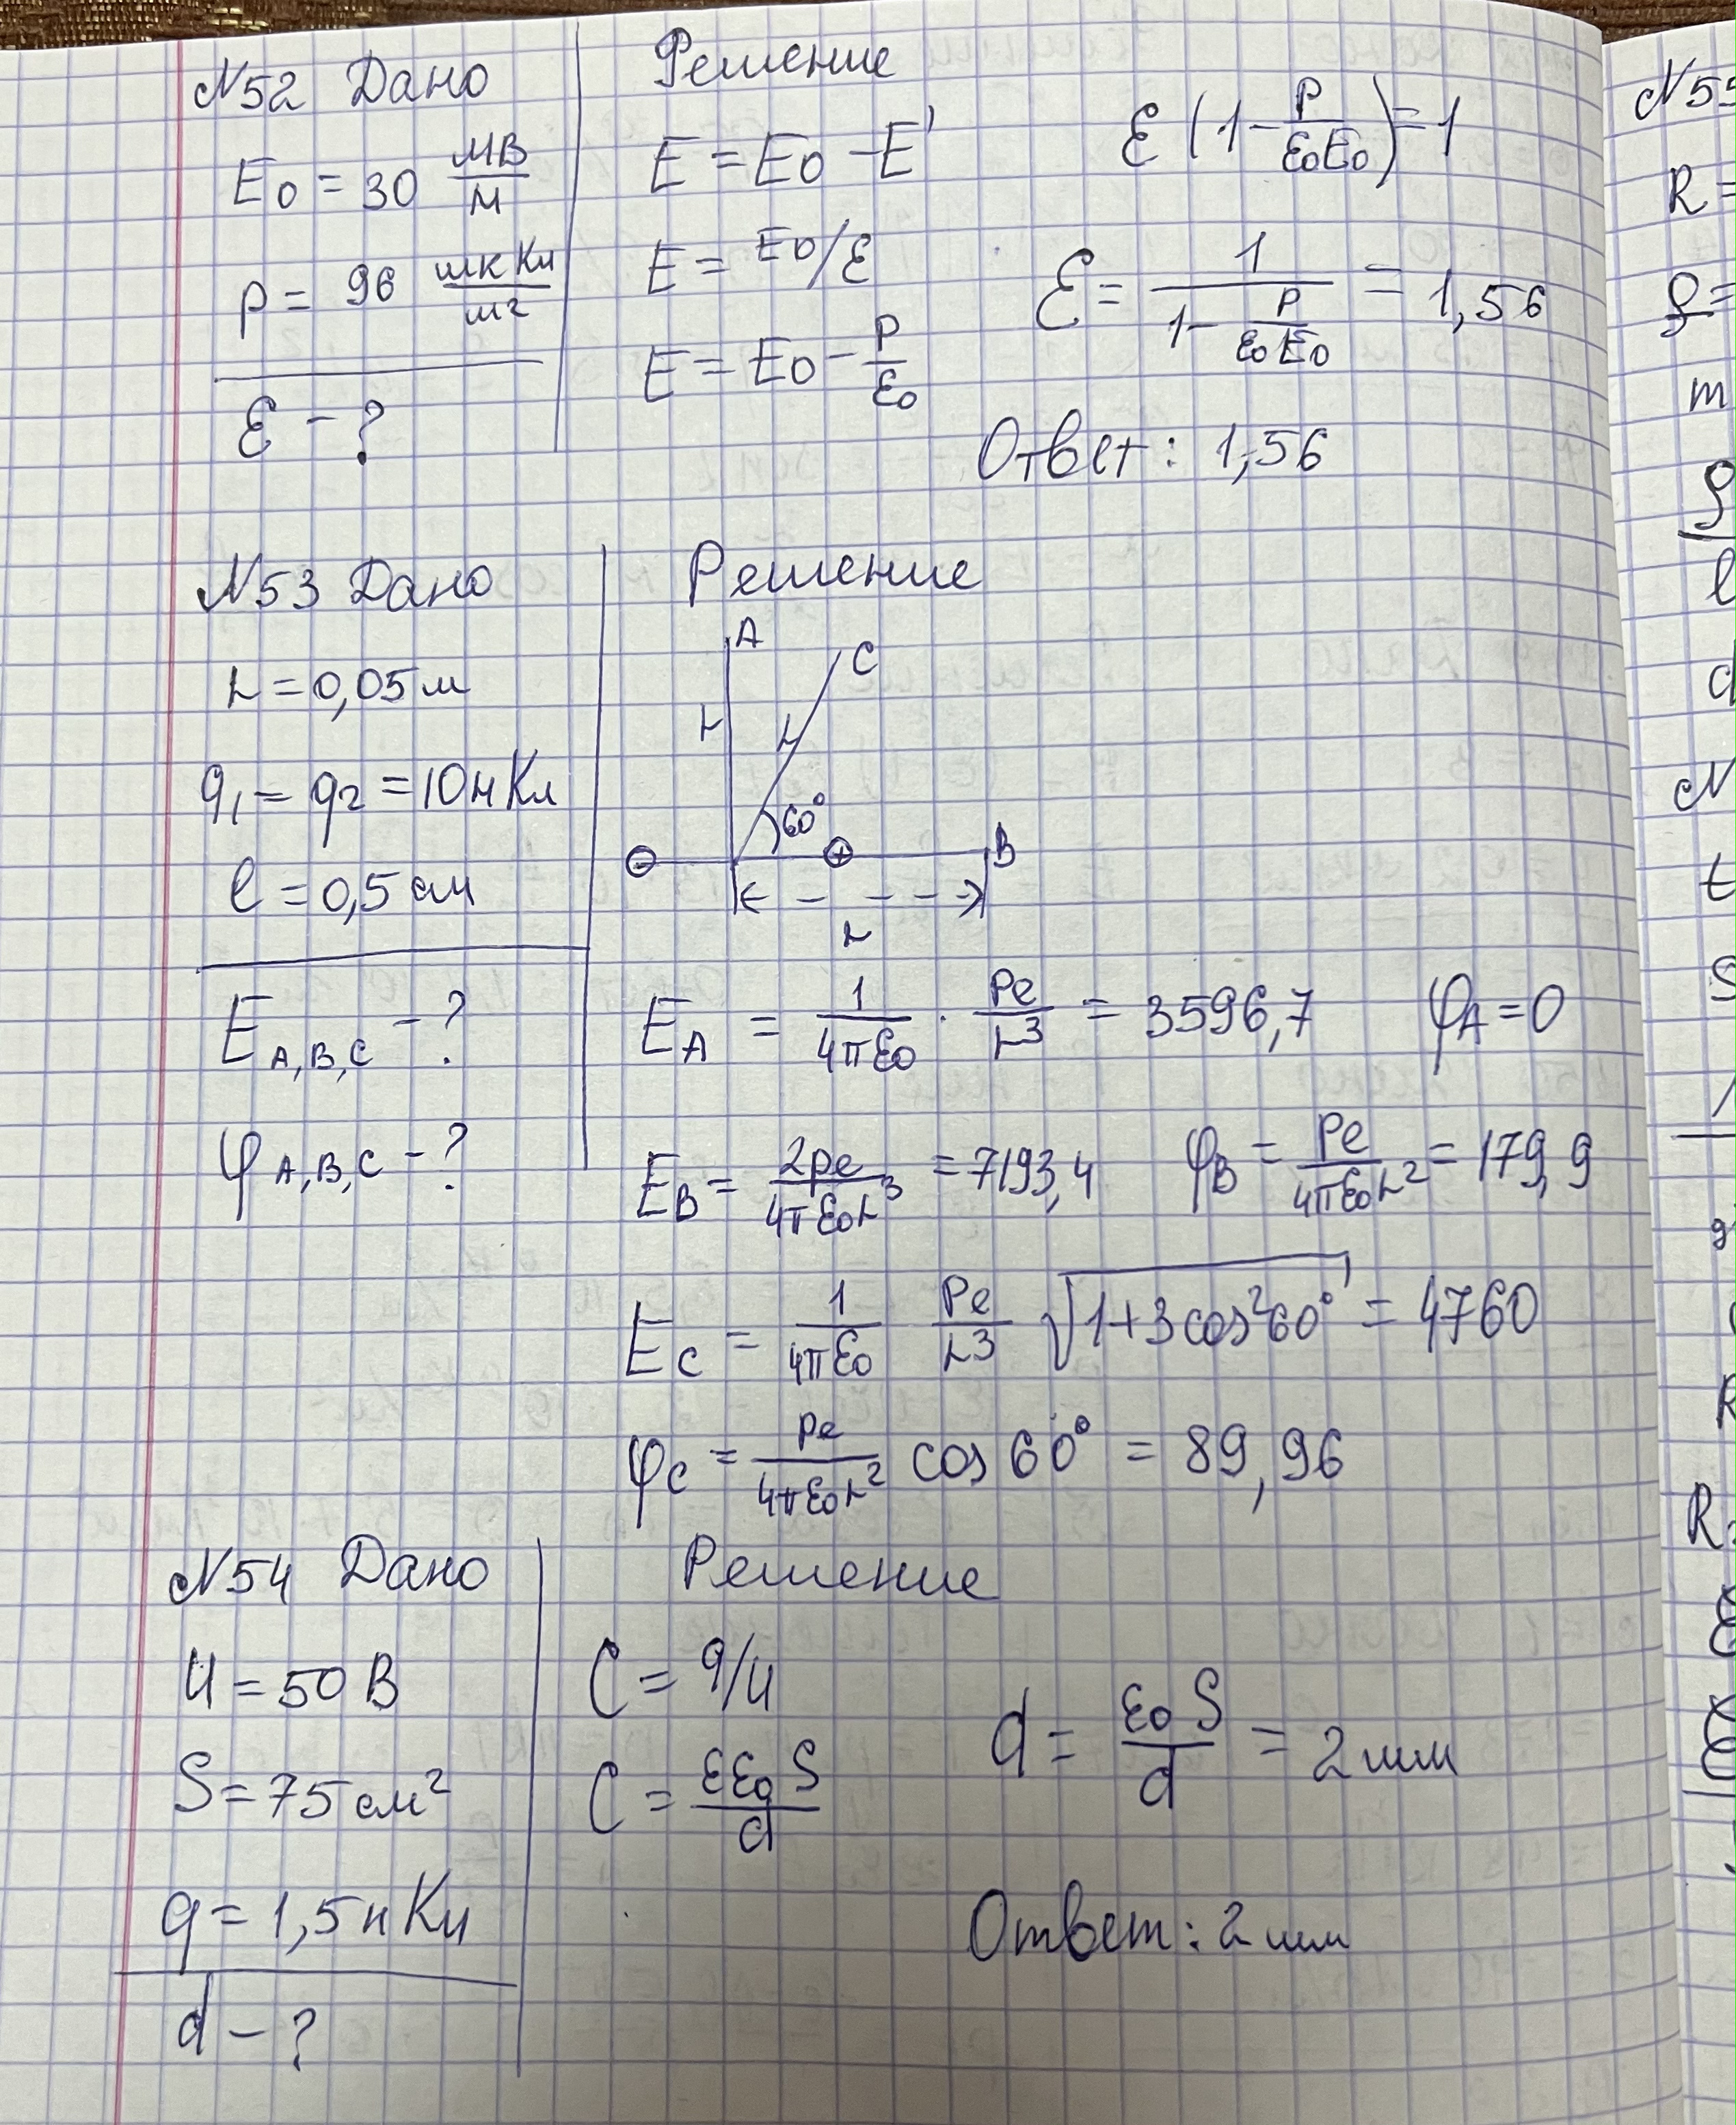 №52 Дано
E₀ = 30 МВ/м
P = 96 мкКл/м²
ε – ?
Решение
E = E₀ – E'
E = E₀/ε
E = E₀ – P/ε₀
ε (1 – P/(ε₀E₀)) = 1
ε = 1/(1 – P/(ε₀E₀)) = 1,56
Ответ: 1,56
№53 Дано
r = 0,05 м
q₁ = q₂ = 10 нКл
l = 0,5 см
E A,B,C – ?
φ A,B,C – ?
Решение
A
C
r
r
60°
–
+
B
r
E_A = 1/(4πε₀) · Pe/r³ = 3596,7 φ_A = 0
E_B = 2pe/(4πε₀r³) = 7193,4 φ_B = Pe/(4πε₀r²) = 179,9
E_C = 1/(4πε₀) Pe/r³ √(1+3cos²60°) = 4760
φ_C = Pe/(4πε₀r²) cos 60° = 89,96
№54 Дано
U = 50 В
S = 75 см²
q = 1,5 нКл
d – ?
Решение
C = q/U
C = εε₀S/d
d = ε₀S/d = 2 мм
Ответ: 2 мм
№55
R =
m
l
d
t
S
R